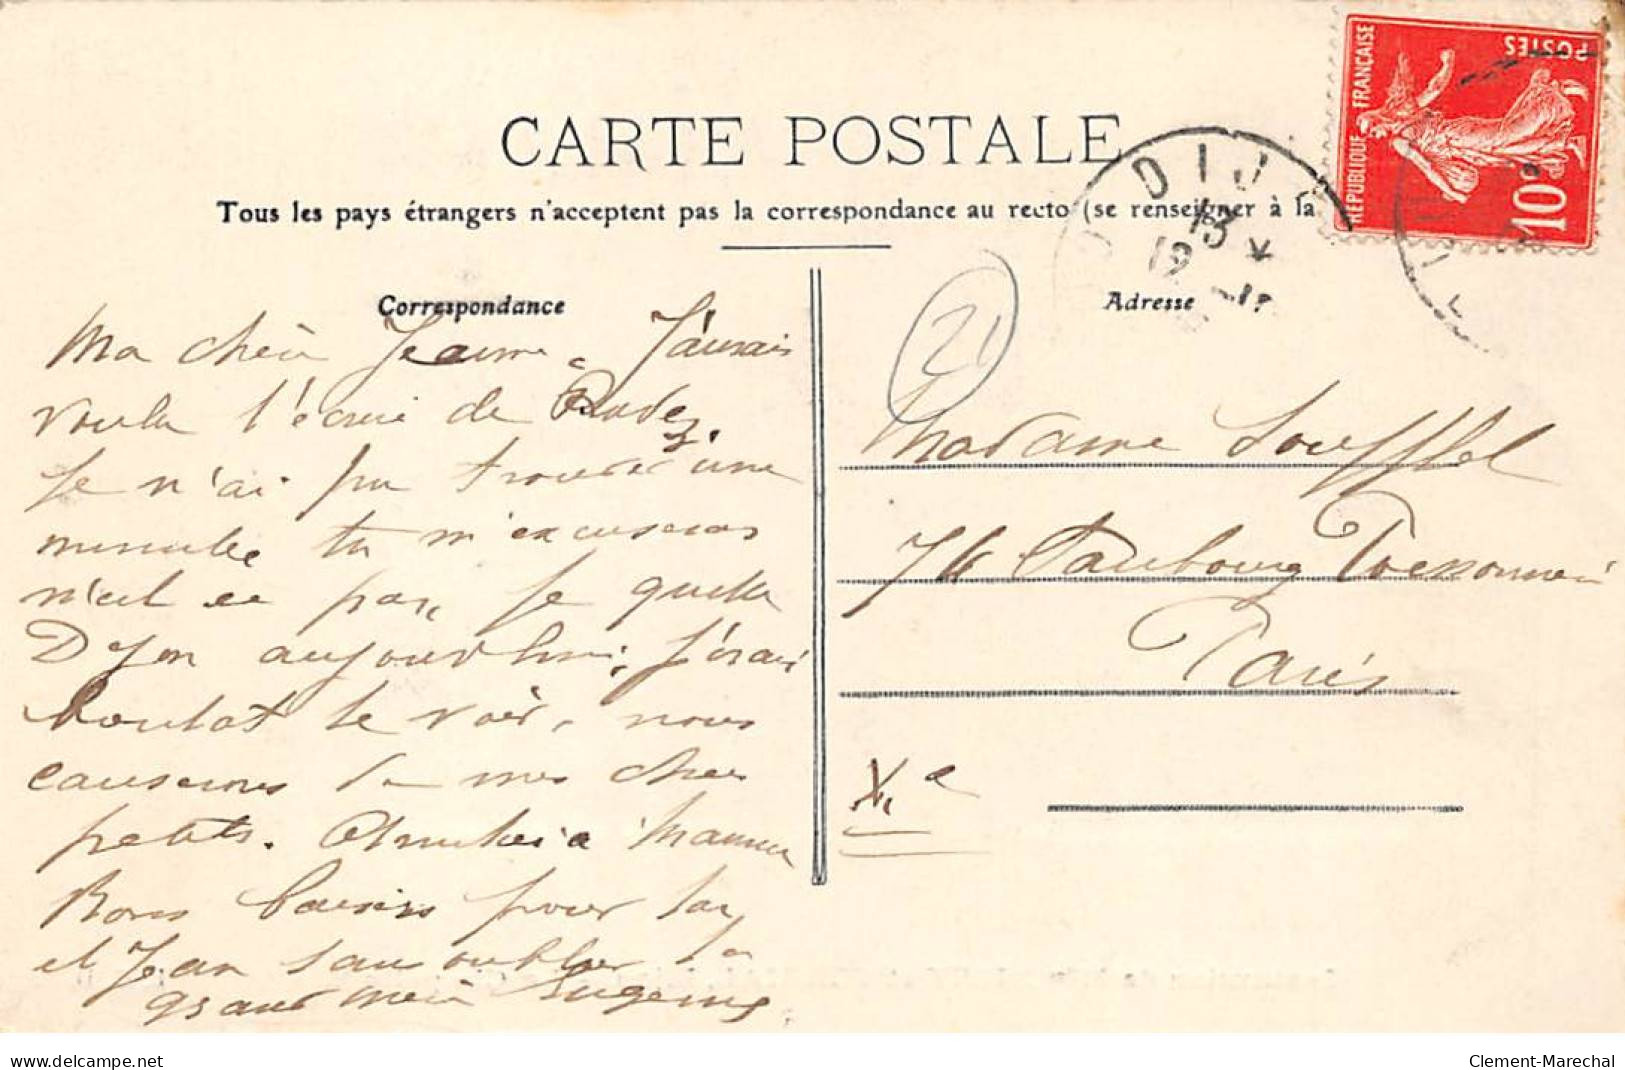 CARTE POSTALE
Tous les pays étrangers n'acceptent pas la correspondance au recto (se renseigner à la
RÉPUBLIQUE FRANÇAISE
POSTES
10c
DIJ
13
19
Correspondance
Adresse
21
Ma chère Jeanne. J'aurais
voulu t'écrire de Rodez.
Je n'ai pu trouver une
minute tu m'excuseras
n'est ce pas, je quitte
Dijon aujourd'hui, j'irai
te voir, nous
causerons de mes chers
petits. Amitiés à Maman
Bons baisers pour toi
et Jean sans oublier la
grand mère Eugénie
Madame Soufflet
76 Faubourg Poissonnière
Paris
Xe
delcampe.net
Clement-Marechal